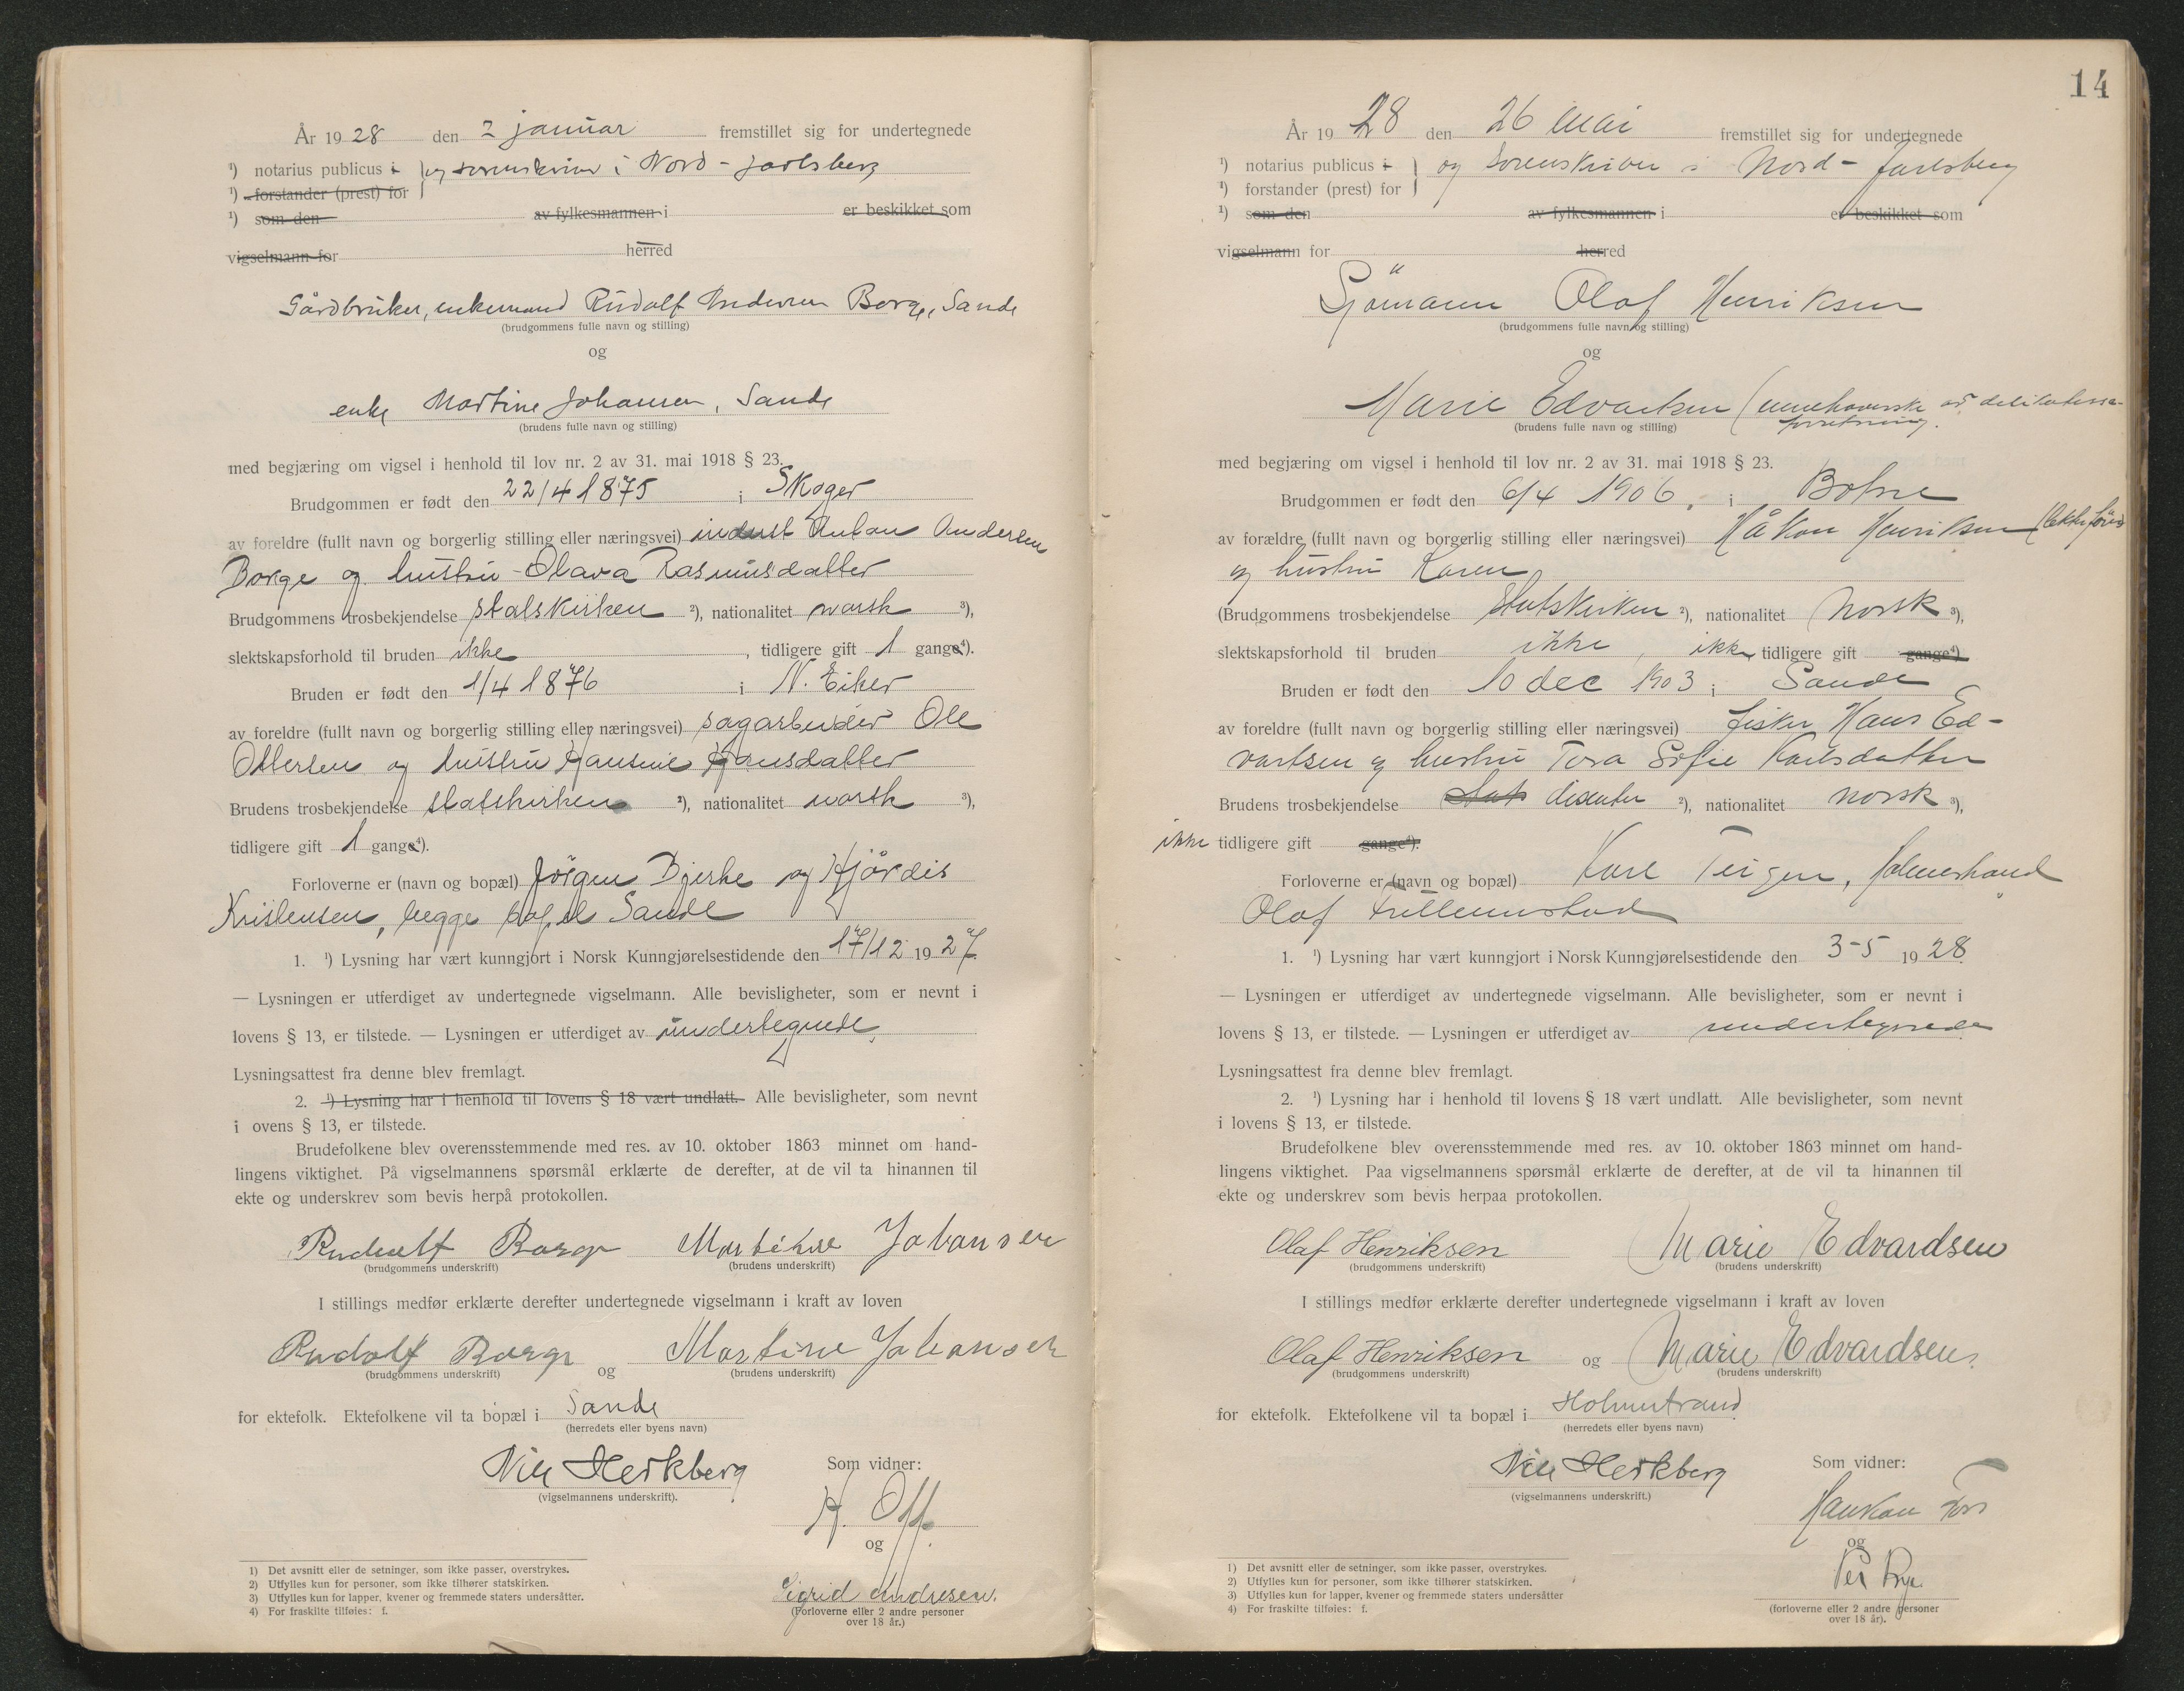 År 1928 den 2 januar fremstillet sig for undertegnede
¹) notarius publicus i } og sorenskriver i Nord-Jarlsberg
¹) forstander (prest) for
¹) som den av fylkesmannen i er beskikket som
vigselmann for herred
Gårdbruker, enkemand Rudolf Andersen Borge, Sande
(brudgommens fulle navn og stilling)
og
enke Martine Johansen, Sande
(brudens fulle navn og stilling)
med begjæring om vigsel i henhold til lov nr. 2 av 31. mai 1918 § 23.
Brudgommen er født den 22/4 1875 i Skoger
av foreldre (fullt navn og borgerlig stilling eller næringsvei) inderst Anton Andersen
Borge og hustru Olava Rasmusdatter
Brudgommens trosbekjendelse statskirken ²), nationalitet norsk ³),
slektskapsforhold til bruden ikke, tidligere gift 1 gange⁴).
Bruden er født den 1/4 1876 i N. Eiker
av foreldre (fullt navn og borgerlig stilling eller næringsvei) sagarbeider Ole
Ottersen og hustru Hansine Hansdatter
Brudens trosbekjendelse statskirken ²), nationalitet norsk ³),
tidligere gift 1 gange⁴).
Forloverne er (navn og bopæl) Jörgen Bjerke og Hjördis
Kristensen, begge bopæl Sande
1. ¹) Lysning har vært kunngjort i Norsk Kunngjørelsestidende den 17/12 1927
— Lysningen er utferdiget av undertegnede vigselmann. Alle bevisligheter, som er nevnt i
lovens § 13, er tilstede. — Lysningen er utferdiget av undertegnede.
Lysningsattest fra denne blev fremlagt.
2. ¹) Lysning har i henhold til lovens § 18 vært undlatt. Alle bevisligheter, som nevnt
i ovens § 13, er tilstede.
Brudefolkene blev overensstemmende med res. av 10. oktober 1863 minnet om hand-
lingens viktighet. På vigselmannens spørsmål erklærte de derefter, at de vil ta hinannen til
ekte og underskrev som bevis herpå protokollen.
Rudolf Borge Martine Johansen
(brudgommens underskrift) (brudens underskrift)
I stillings medfør erklærte derefter undertegnede vigselmann i kraft av loven
Rudolf Borge og Martine Johansen
(brudgommens underskrift) (brudens underskrift)
for ektefolk. Ektefolkene vil ta bopæl i Sande
(herredets eller byens navn)
Nils Hertzberg Som vidner:
(vigselmannens underskrift).
H. Off.
og
Sigrid Andresen.
(Forloverne eller 2 andre personer
over 18 år.)
1) Det avsnitt eller de setninger, som ikke passer, overstrykes.
2) Utfylles kun for personer, som ikke tilhører statskirken.
3) Utfylles kun for lapper, kvener og fremmede staters undersåtter.
4) For fraskilte tilføies: f.
14
År 1928 den 26 mai fremstillet sig for undertegnede
¹) notarius publicus i } og sorenskriver i Nord-Jarlsberg
¹) forstander (prest) for
¹) som den av fylkesmannen i er beskikket som
vigselmann for herred
Sjömann Olaf Henriksen
(brudgommens fulle navn og stilling)
og
Marie Edvartsen (innehaverske av delikatesse-
forretning.
(brudens fulle navn og stilling)
med begjæring om vigsel i henhold til lov nr. 2 av 31. mai 1918 § 23.
Brudgommen er født den 6/4 1906, i Botne
av forældre (fullt navn og borgerlig stilling eller næringsvei) Håkon Henriksen
og hustru Karen
(Brudgommens trosbekjendelse statskirken ²), nationalitet norsk ³),
slektskapsforhold til bruden ikke, ikke tidligere gift gange⁴)
Bruden er født den 10 dec 1903 i Sande
av foreldre (fullt navn og borgerlig stilling eller næringsvei) fisker Hans Ed-
vartsen og hustru Tora Sofie Karlsdatter
Brudens trosbekjendelse stat disenter ²), nationalitet norsk ³),
ikke tidligere gift gange⁴).
Forloverne er (navn og bopæl) Kare Teigen, Holmestrand
Olaf
1. ¹) Lysning har vært kunngjort i Norsk Kunngjørelsestidende den 3-5 1928
— Lysningen er utferdiget av undertegnede vigselmann. Alle bevisligheter, som er nevnt i
lovens § 13, er tilstede. — Lysningen er utferdiget av undertegnede
Lysningsattest fra denne blev fremlagt.
2. ¹) Lysning har i henhold til lovens § 18 vært undlatt. Alle bevisligheter, som nevnt
i lovens § 13, er tilstede.
Brudefolkene blev overensstemmende med res. av 10. oktober 1863 minnet om hand-
lingens viktighet. Paa vigselmannens spørsmål erklærte de derefter, at de vil ta hinannen til
ekte og underskrev som bevis herpaa protokollen.
Olaf Henriksen Marie Edvardsen
(brudgommens underskrift) (brudens underskrift)
I stillings medfør erklærte derefter undertegnede vigselmann i kraft av loven
Olaf Henriksen og Marie Edvardsen
(brudgommens underskrift) (brudens underskrift)
for ektefolk. Ektefolkene vil ta bopæl i Holmestrand
(herredets eller byens navn)
Nils Hertzberg Som vidner:
(vigselmannens underskrift.)
Haukon Foss
og
Per Rye
(forloverne eller 2 andre personer
over 18 år).
1) Det avsnitt eller de setninger, som ikke passer, overstrykes.
2) Utfylles kun for personer, som ikke tilhører statskirken.
3) Utfylles kun for lapper, kvener og fremmede staters undersåtter
4) For fraskilte tilføies: f.